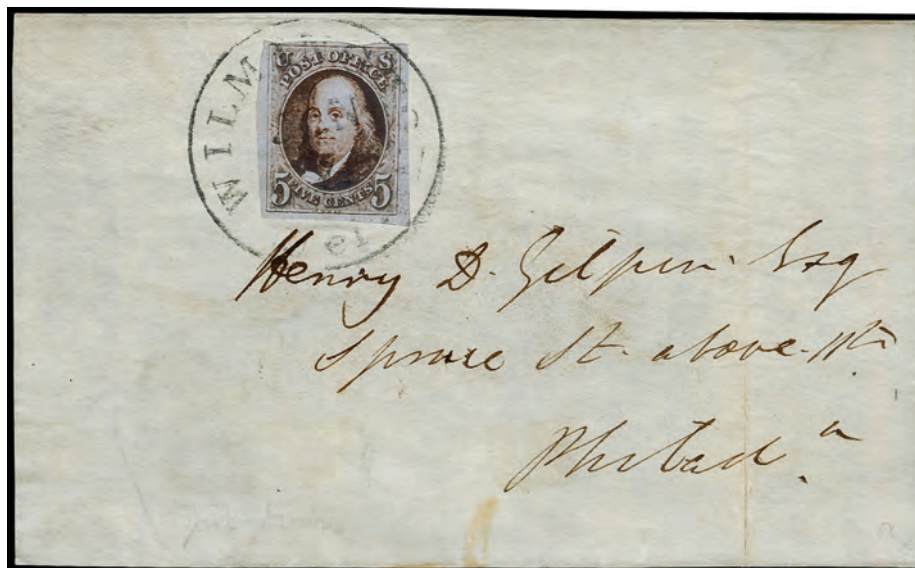 WILM
U S
POST OFFICE
5 FIVE CENTS 5
Henry D. Gilpin Esq
Spruce St. above 11th
Philad.a